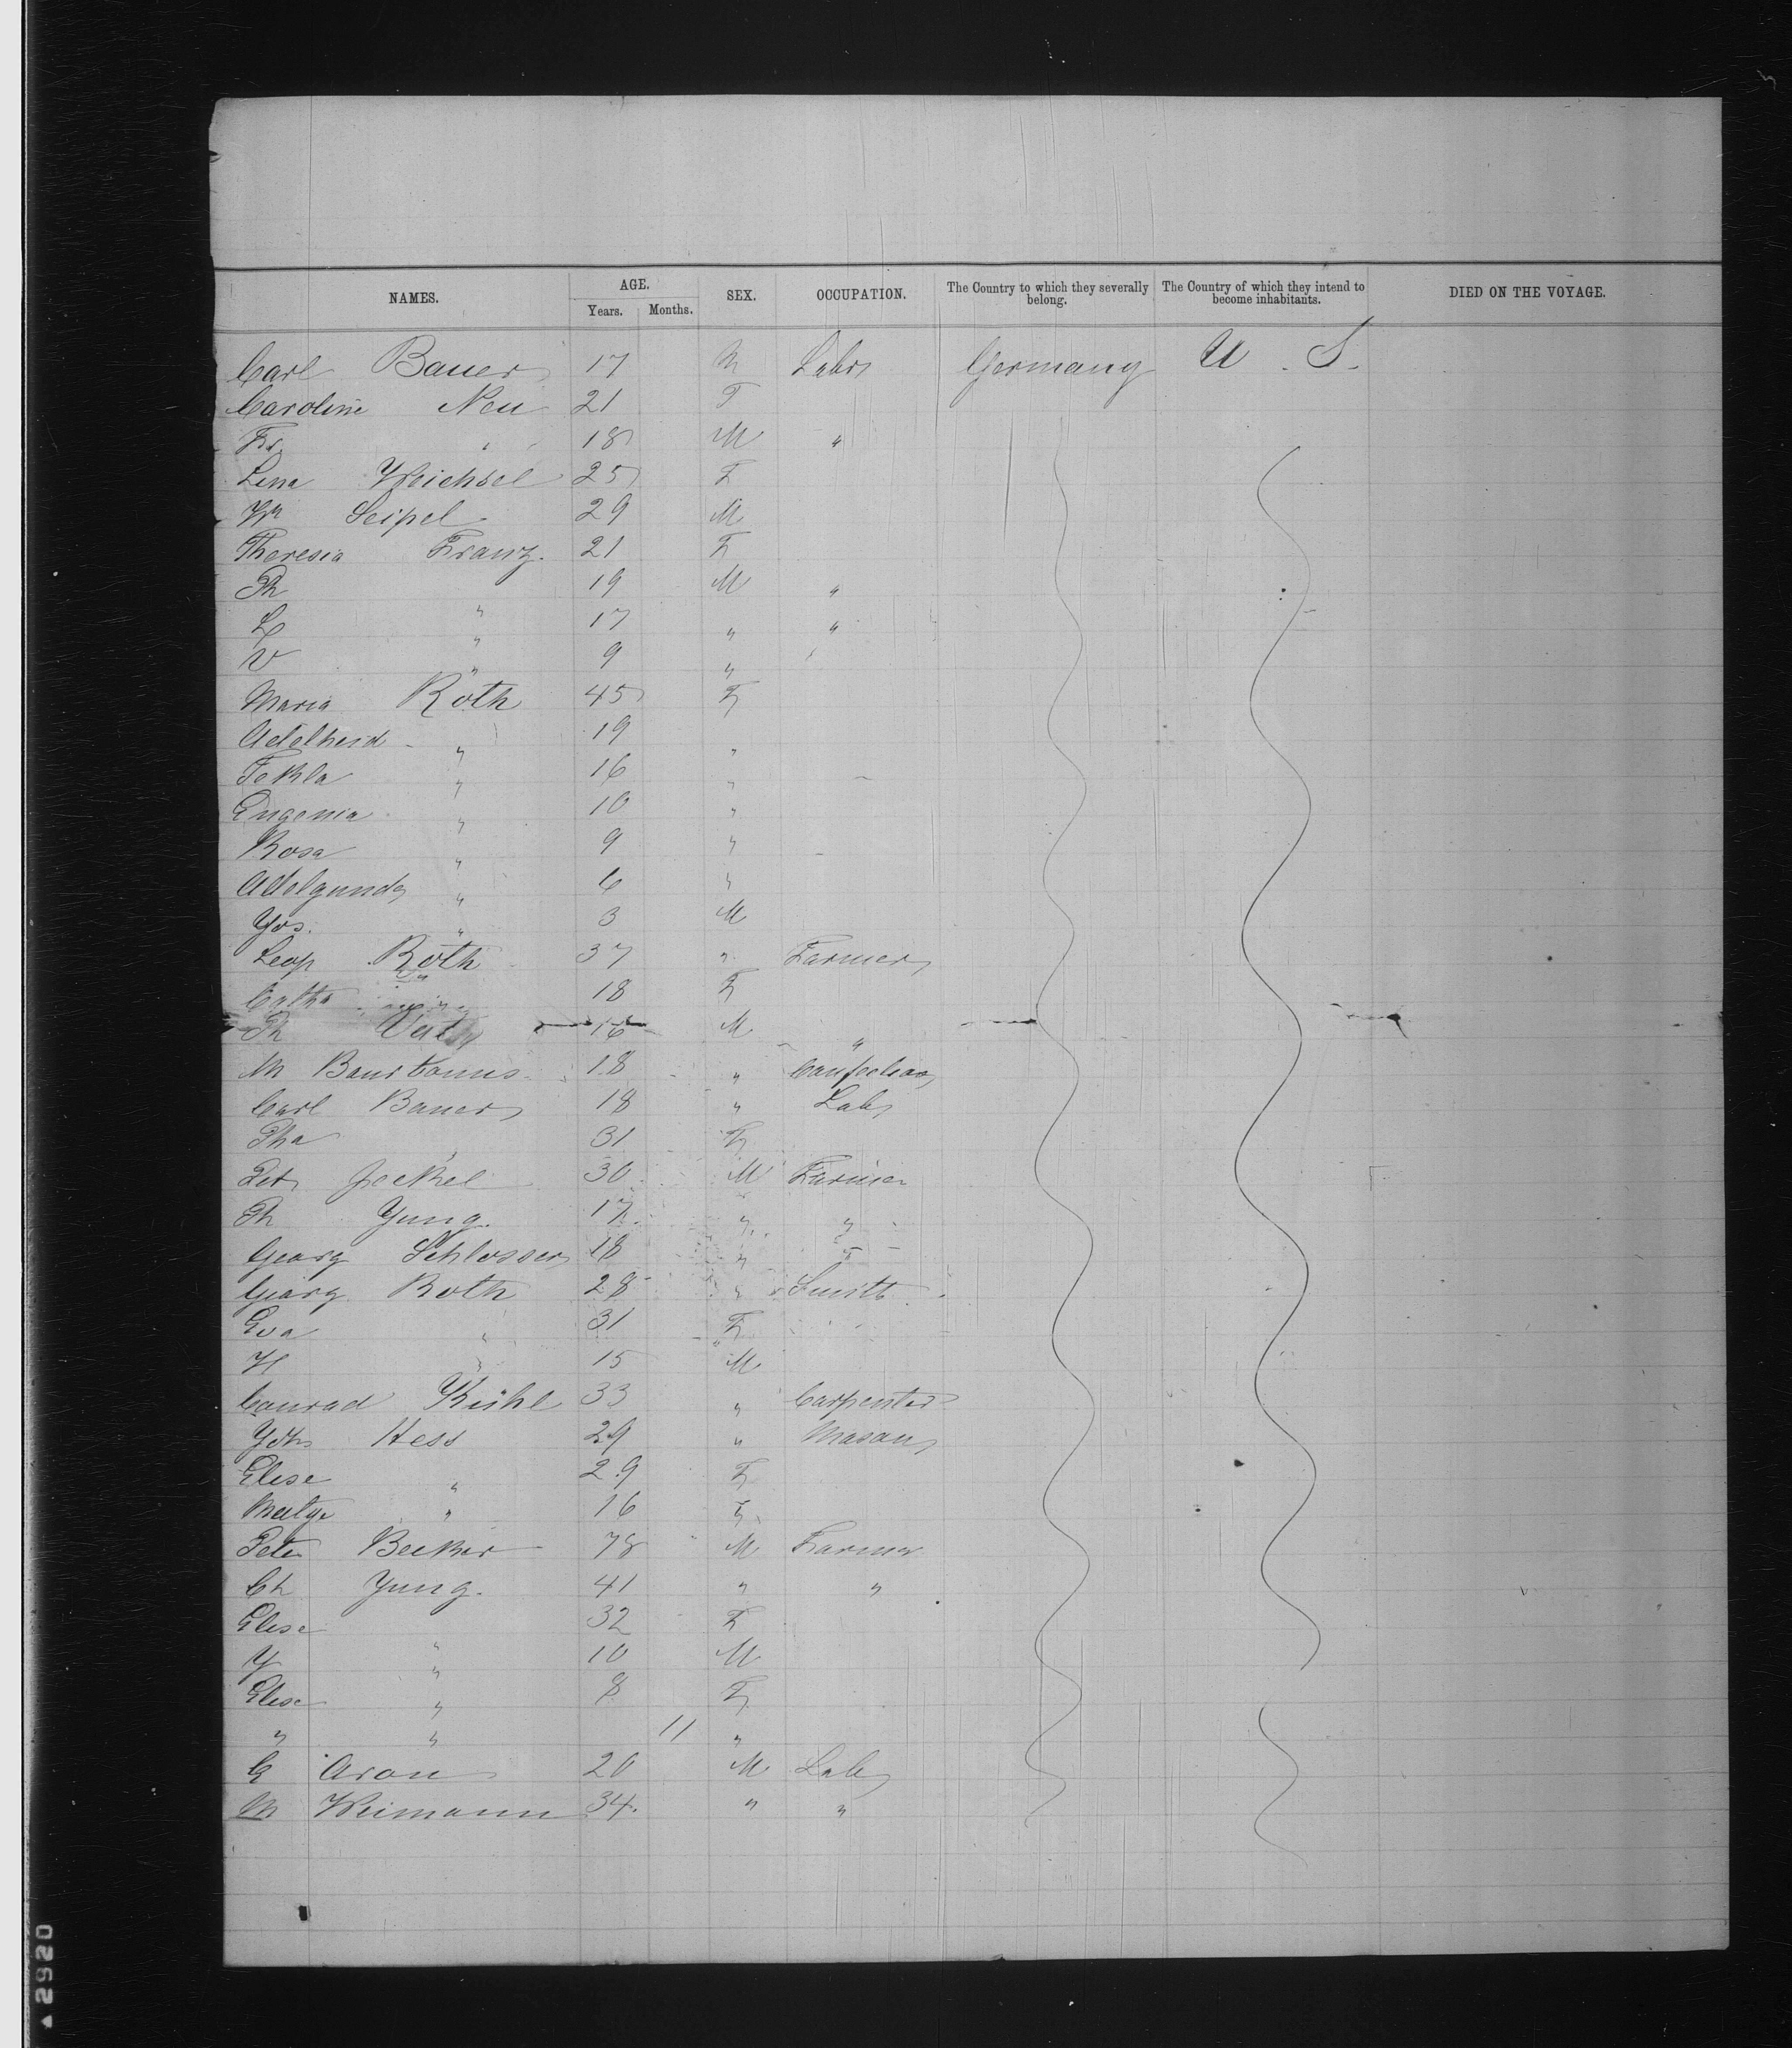 NAMES. AGE. Years. Months. SEX. OCCUPATION. The Country to which they severally belong. The Country of which they intend to become inhabitants. DIED ON THE VOYAGE.
Carl Bauer 17 M Labr Germany U. S.
Caroline Neu 21 F
Fr. " 18 M "
Lena Weichsel 25 F
Wm Seipel 29 M
Theresia Franz. 21 F
Ph " 19 M "
L " 17 " "
V " 9 "
Maria Roth 45 F
Adelheid " 19 "
Tekla " 16 "
Eugenia " 10 "
Rosa " 9 "
Adelgunde " 6 "
Jos. " 3 M
Leop Roth 37 " Farmer
Cath 18 F
Ph 16 M "
M 18 "
Carl Bauer 18 " Lab
31 F
Pet Jeckel 30 M Farmer
Ph Yung. 17. " "
Georg Schlosser 18 " "
Georg Roth 28 " Smith
Eva " 31 F
H " 15 M
Conrad 33 " Carpenter
Joh Hess 29 " Mason
Elise " 29 F
" 16 F
Peter Becker 78 M Farmer
Ch Yung. 41 " "
Elise " 32 F
Y " 10 M
Elise " 8 F
" " 11 "
G Aron 20 M Lab
M Weimann 34. " "
2920